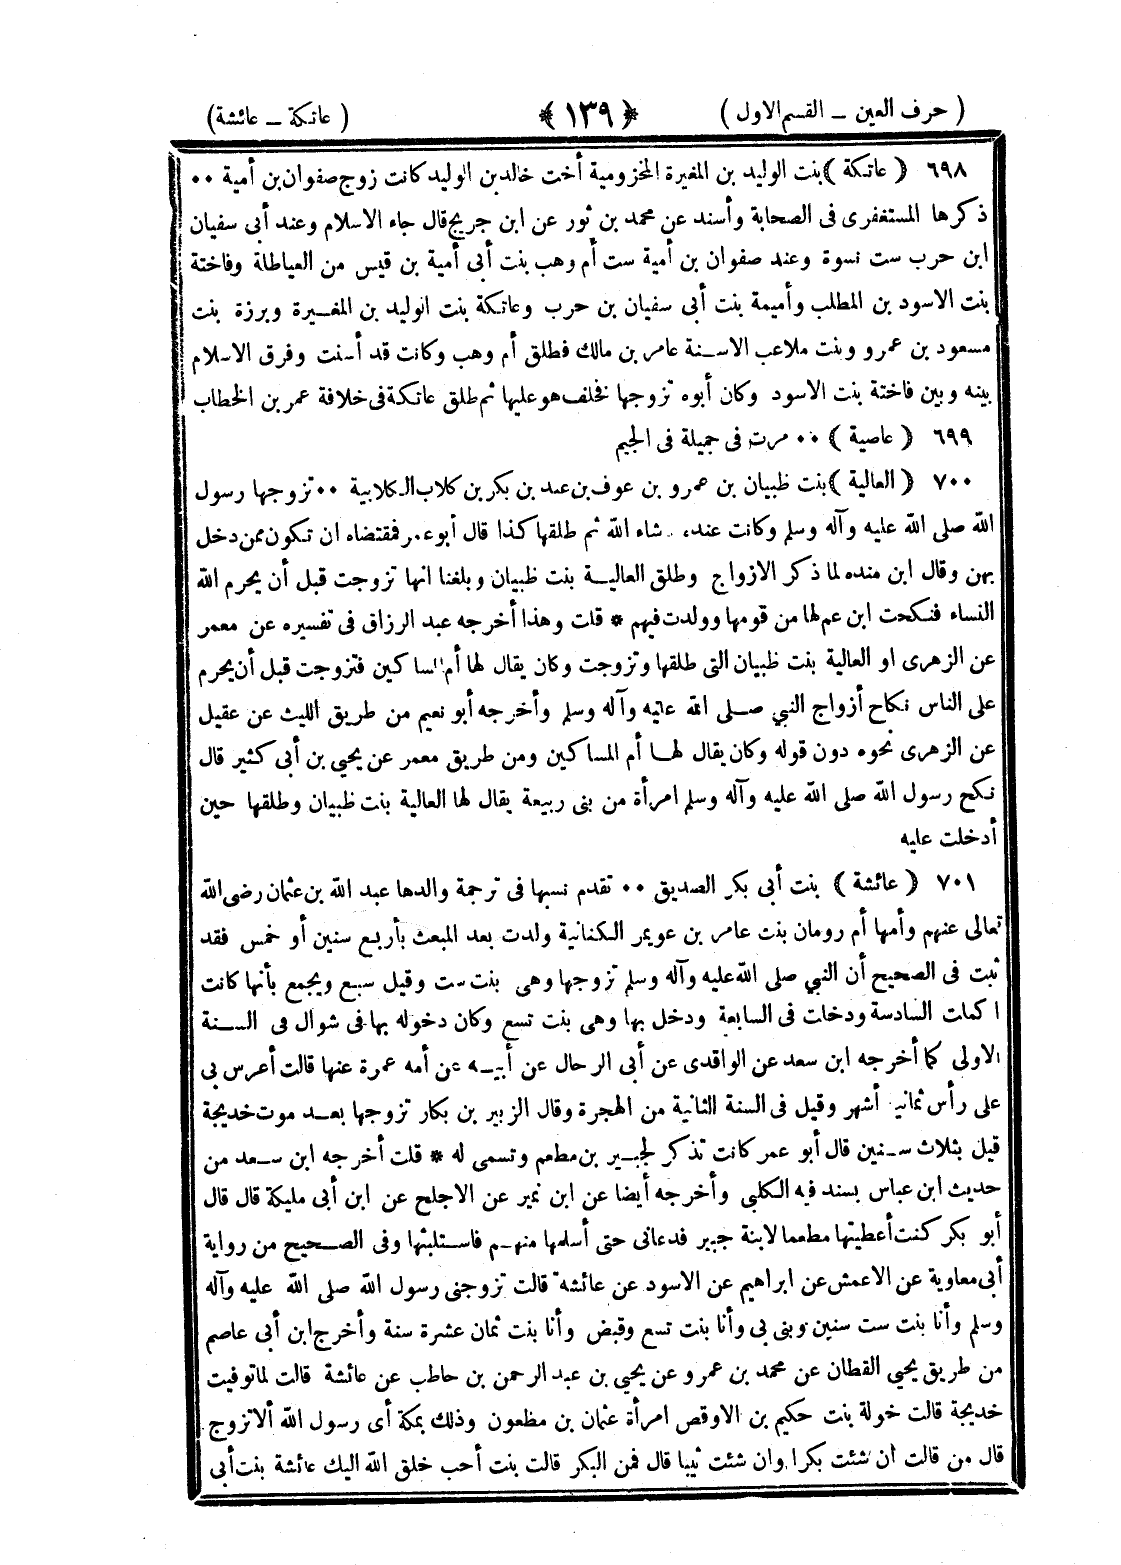 ( حرف العين ــ القسم الاول ) ﴿ ١٣٩ ﴾ ( عاتكة ــ عائشة )
٦٩٨ ( عاتكة ) بنت الوليد بن المغيرة المخزومية أخت خالد بن الوليد كانت زوج صفوان بن أمية ٠٠
ذكرها المستغفرى فى الصحابة وأسند عن محمد بن ثور عن ابن جريج قال جاء الاسلام وعند أبى سفيان
ابن حرب ست نسوة وعند صفوان بن أمية ست أم وهب بنت أبى أمية بن قيس من العياطلة وفاختة
بنت الاسود بن المطلب وأميمة بنت أبى سفيان بن حرب وعاتكة بنت الوليد بن المغـــيرة وبرزة بنت
مسعود بن عمرو وبنت ملاعب الاسـنة عامر بن مالك فطلق أم وهب وكانت قد أسنت وفرق الاسلام
بينه وبين فاختة بنت الاسود وكان أبوه تزوجها فخلف هو عليها ثم طلق عاتكة فى خلافة عمر بن الخطاب
٦٩٩ ( عاصية ) ٠٠ مرت فى جميلة فى الجيم
٧٠٠ ( العالية ) بنت ظبيان بن عمرو بن عوف بن عبد بن بكر بن كلاب الكلابية ٠٠ تزوجها رسول
الله صلى الله عليه وآله وسلم وكانت عنده شاء الله ثم طلقها كذا قال أبو عمر فمقتضاه ان تكون ممن دخل
بهن وقال ابن منده لما ذكر الازواج وطلق العاليـــة بنت ظبيان وبلغنا انها تزوجت قبل أن يحرم الله
النساء فنكحت ابن عم لها من قومها وولدت فيهم * قلت وهذا أخرجه عبد الرزاق فى تفسيره عن معمر
عن الزهرى او العالية بنت ظبيان التى طلقها وتزوجت وكان يقال لها أم المساكين فتزوجت قبل أن يحرم
على الناس نكاح أزواج النبي صـلى الله عليه وآله وسلم وأخرجه أبو نعيم من طريق الليث عن عقيل
عن الزهرى نحوه دون قوله وكان يقال لهــا أم المساكين ومن طريق معمر عن يحيى بن أبى كثير قال
نكح رسول الله صلى الله عليه وآله وسلم امرأة من بنى ربيعة يقال لها العالية بنت ظبيان وطلقها حين
أدخلت عليه
٧٠١ ( عائشة ) بنت أبى بكر الصديق ٠٠ تقدم نسبها فى ترجمة والدها عبد الله بن عثمان رضى الله
تعالى عنهم وأمها أم رومان بنت عامر بن عويمر الكنانية ولدت بعد المبعث بأربع سنين أو خمس فقد
ثبت فى الصحيح أن النبي صلى الله عليه وآله وسلم تزوجها وهى بنت ست وقيل سبع ويجمع بأنها كانت
اكملت السادسة ودخلت فى السابعة ودخل بها وهى بنت تسع وكان دخوله بها فى شوال فى الســنة
الاولى كما أخرجه ابن سعد عن الواقدى عن أبى الرحال عن أبيـه عن أمه عمرة عنها قالت أعرس بى
على رأس ثمانية أشهر وقيل فى السنة الثانية من الهجرة وقال الزبير بن بكار تزوجها بعــد موت خديجة
قيل بثلاث سـنين قال أبو عمر كانت تذكر لجبـير بن مطعم وتسمى له * قلت أخرجه ابن سـعد من
حديث ابن عباس بسند فيه الكلبى وأخرجه أيضا عن ابن نمير عن الاجلح عن ابن أبى مليكة قال قال
أبو بكر كنت أعطيتها مطعما لابنة جبير فدعانى حتى أسلها منهـم فاستلبثها وفى الصـحيح من رواية
أبى معاوية عن الاعمش عن ابراهيم عن الاسود عن عائشة قالت تزوجنى رسول الله صلى الله عليه وآله
وسلم وأنا بنت ست سنين وبنى بى وأنا بنت تسع وقبض وأنا بنت ثمان عشرة سنة وأخرج ابن أبى عاصم
من طريق يحيى القطان عن محمد بن عمرو عن يحيى بن عبد الرحمن بن حاطب عن عائشة قالت لما توفيت
خديجة قالت خولة بنت حكيم بن الاوقص امرأة عثمان بن مظعون وذلك بمكة أى رسول الله ألا تزوج
قال من قالت ان شئت بكرا وان شئت ثيبا قال فمن البكر قالت بنت أحب خلق الله اليك عائشة بنت أبى